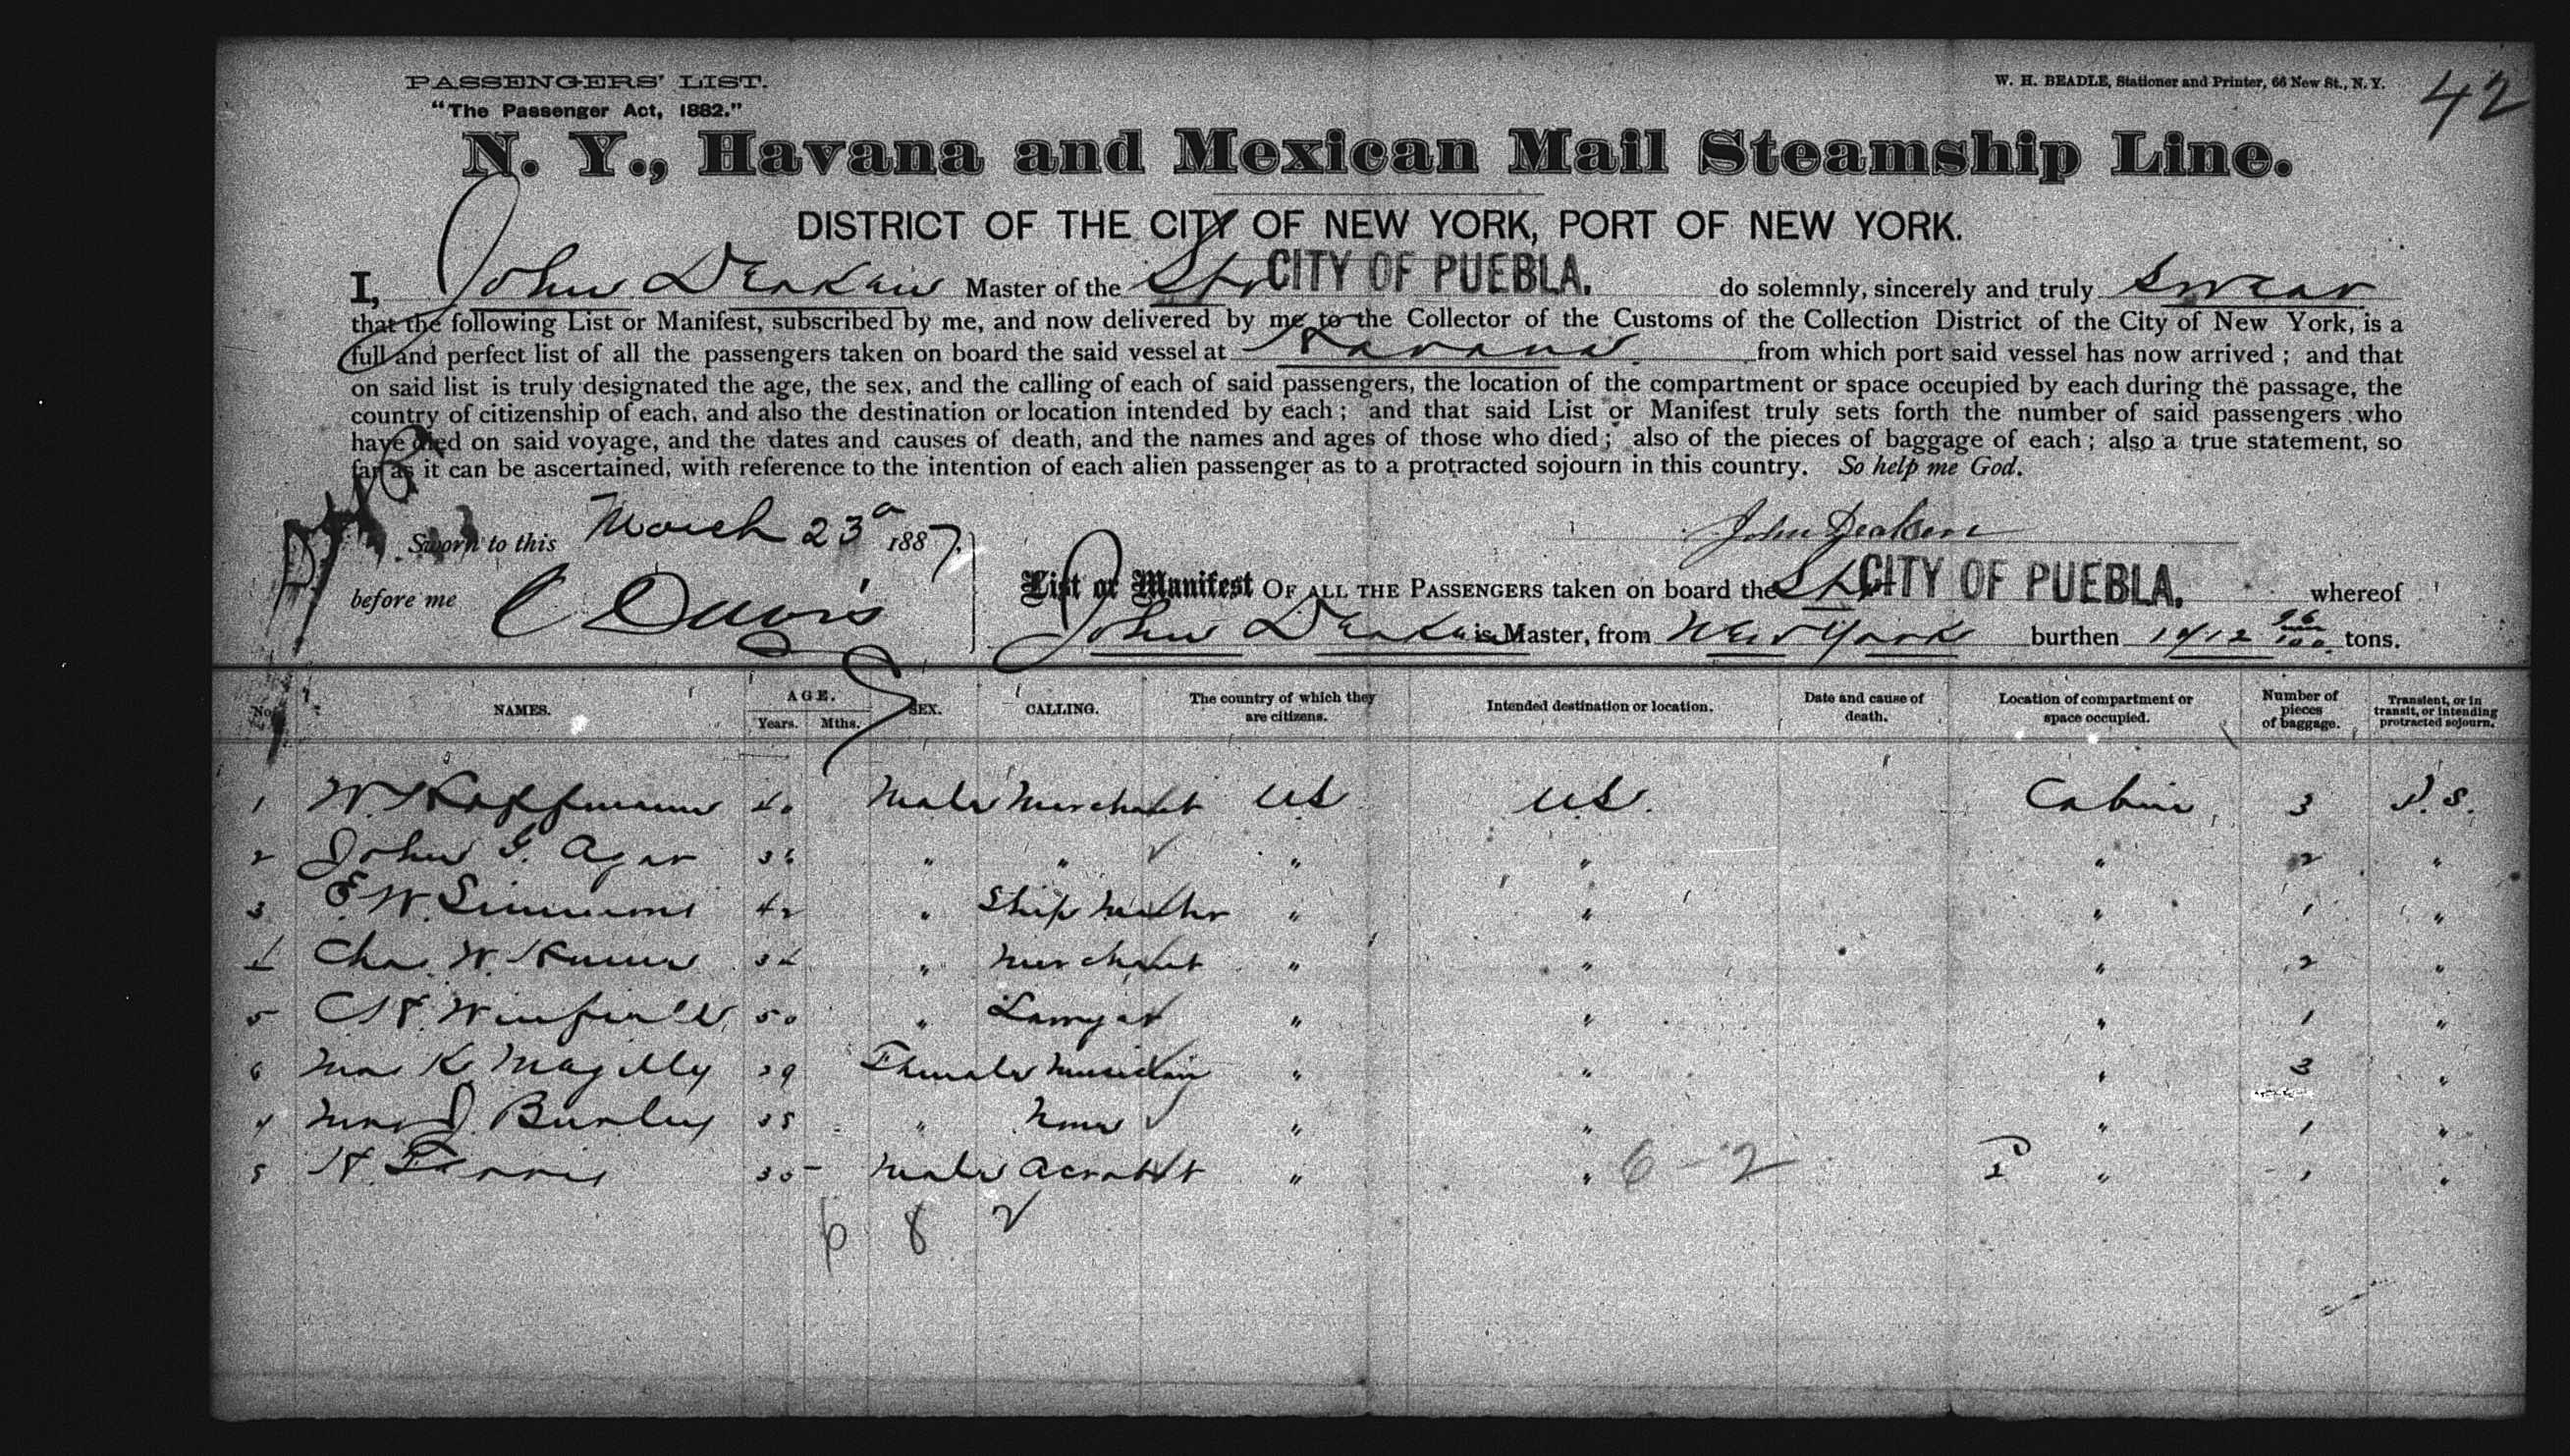 PASSENGERS' LIST.
"The Passenger Act, 1882."
W. H. BEADLE, Stationer and Printer, 66 New St., N. Y.
42
N. Y., Havana and Mexican Mail Steamship Line.
DISTRICT OF THE CITY OF NEW YORK, PORT OF NEW YORK.
I, John Deaken Master of the Str CITY OF PUEBLA. do solemnly, sincerely and truly swear
that the following List or Manifest, subscribed by me, and now delivered by me to the Collector of the Customs of the Collection District of the City of New York, is a
full and perfect list of all the passengers taken on board the said vessel at Havana from which port said vessel has now arrived; and that
on said list is truly designated the age, the sex, and the calling of each of said passengers, the location of the compartment or space occupied by each during the passage, the
country of citizenship of each, and also the destination or location intended by each; and that said List or Manifest truly sets forth the number of said passengers who
have died on said voyage, and the dates and causes of death, and the names and ages of those who died; also of the pieces of baggage of each; also a true statement, so
far as it can be ascertained, with reference to the intention of each alien passenger as to a protracted sojourn in this country. So help me God.
Sworn to this March 23d 1887. John Deaken
before me C Davis
List or Manifest OF ALL THE PASSENGERS taken on board the Str CITY OF PUEBLA. whereof
John Deaken is Master, from New York burthen tons.
No. NAMES. AGE. Years. Mths. SEX. CALLING. The country of which they are citizens. Intended destination or location. Date and cause of death. Location of compartment or space occupied. Number of pieces of baggage. Transient, or in transit, or intending protracted sojourn.
1 W. Hoffmann 40 Male Merchant US US. Cabin 3 P. S.
2 John G. Agar 36 " " " " " 2 "
3 E. W. Simmons 42 " Ship Master " " " 1 "
4 Chas. W. 34 " Merchant " " " 2 "
5 C. H. Winfield 50 " Lawyer " " " 1 "
6 Mrs K Magilly 29 Female Musician " " " 3 "
7 Mrs J. Burley 35 " None " " " 1 "
8 H. Ferris 30 Male Acrobat " " 6-2 " 1 "
8